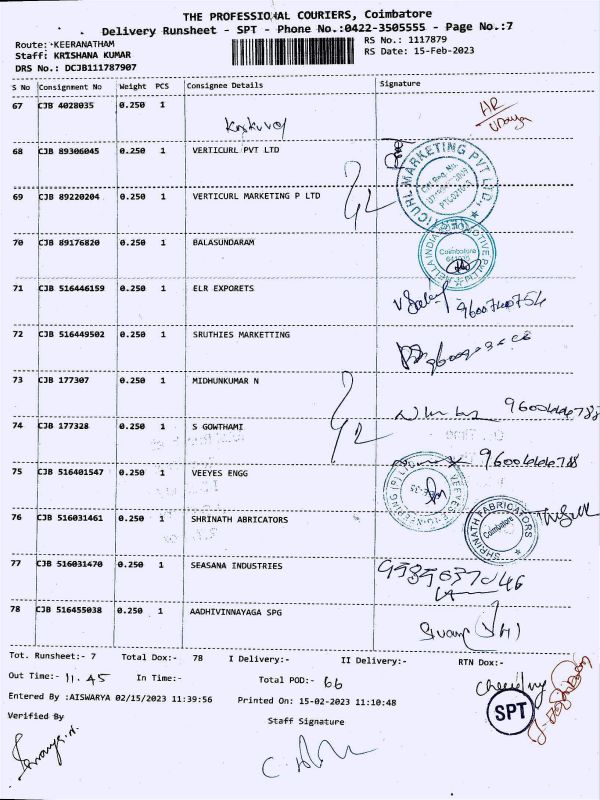 THE PROFESSIONAL COURIERS, Coimbatore
Delivery Runsheet - SPT - Phone No.:0422-3505555 - Page No.:7
Route: KEERANATHAM
RS No.: 1117879
Staff: KRISHANA KUMAR
RS Date: 15-Feb-2023
DRS No.: DCJB111787907
S No Consignment No Weight PCS Consignee Details Signature
67 CJB 4028035 0.250 1
68 CJB 89306045 0.250 1 VERTICURL PVT LTD
69 CJB 89220204 0.250 1 VERTICURL MARKETING P LTD
70 CJB 89176820 0.250 1 BALASUNDARAM
Coimbatore
71 CJB 516446159 0.250 1 ELR EXPORETS
9600740754
72 CJB 516449502 0.250 1 SRUTHIES MARKETTING
73 CJB 177307 0.250 1 MIDHUNKUMAR N
74 CJB 177328 0.250 1 S GOWTHAMI
75 CJB 516401547 0.250 1 VEEYES ENGG
76 CJB 516031461 0.250 1 SHRINATH ABRICATORS
SHRINATH FABRICATORS
Coimbatore
77 CJB 516031470 0.250 1 SEASANA INDUSTRIES
78 CJB 516455038 0.250 1 AADHIVINNAYAGA SPG
Tot. Runsheet:- 7 Total Dox:- 78 I Delivery:- II Delivery:- RTN Dox:-
Out Time:- 11.45 In Time:- Total POD:- 66
Entered By :AISWARYA 02/15/2023 11:39:56 Printed On: 15-02-2023 11:10:48
SPT
Verified By Staff Signature